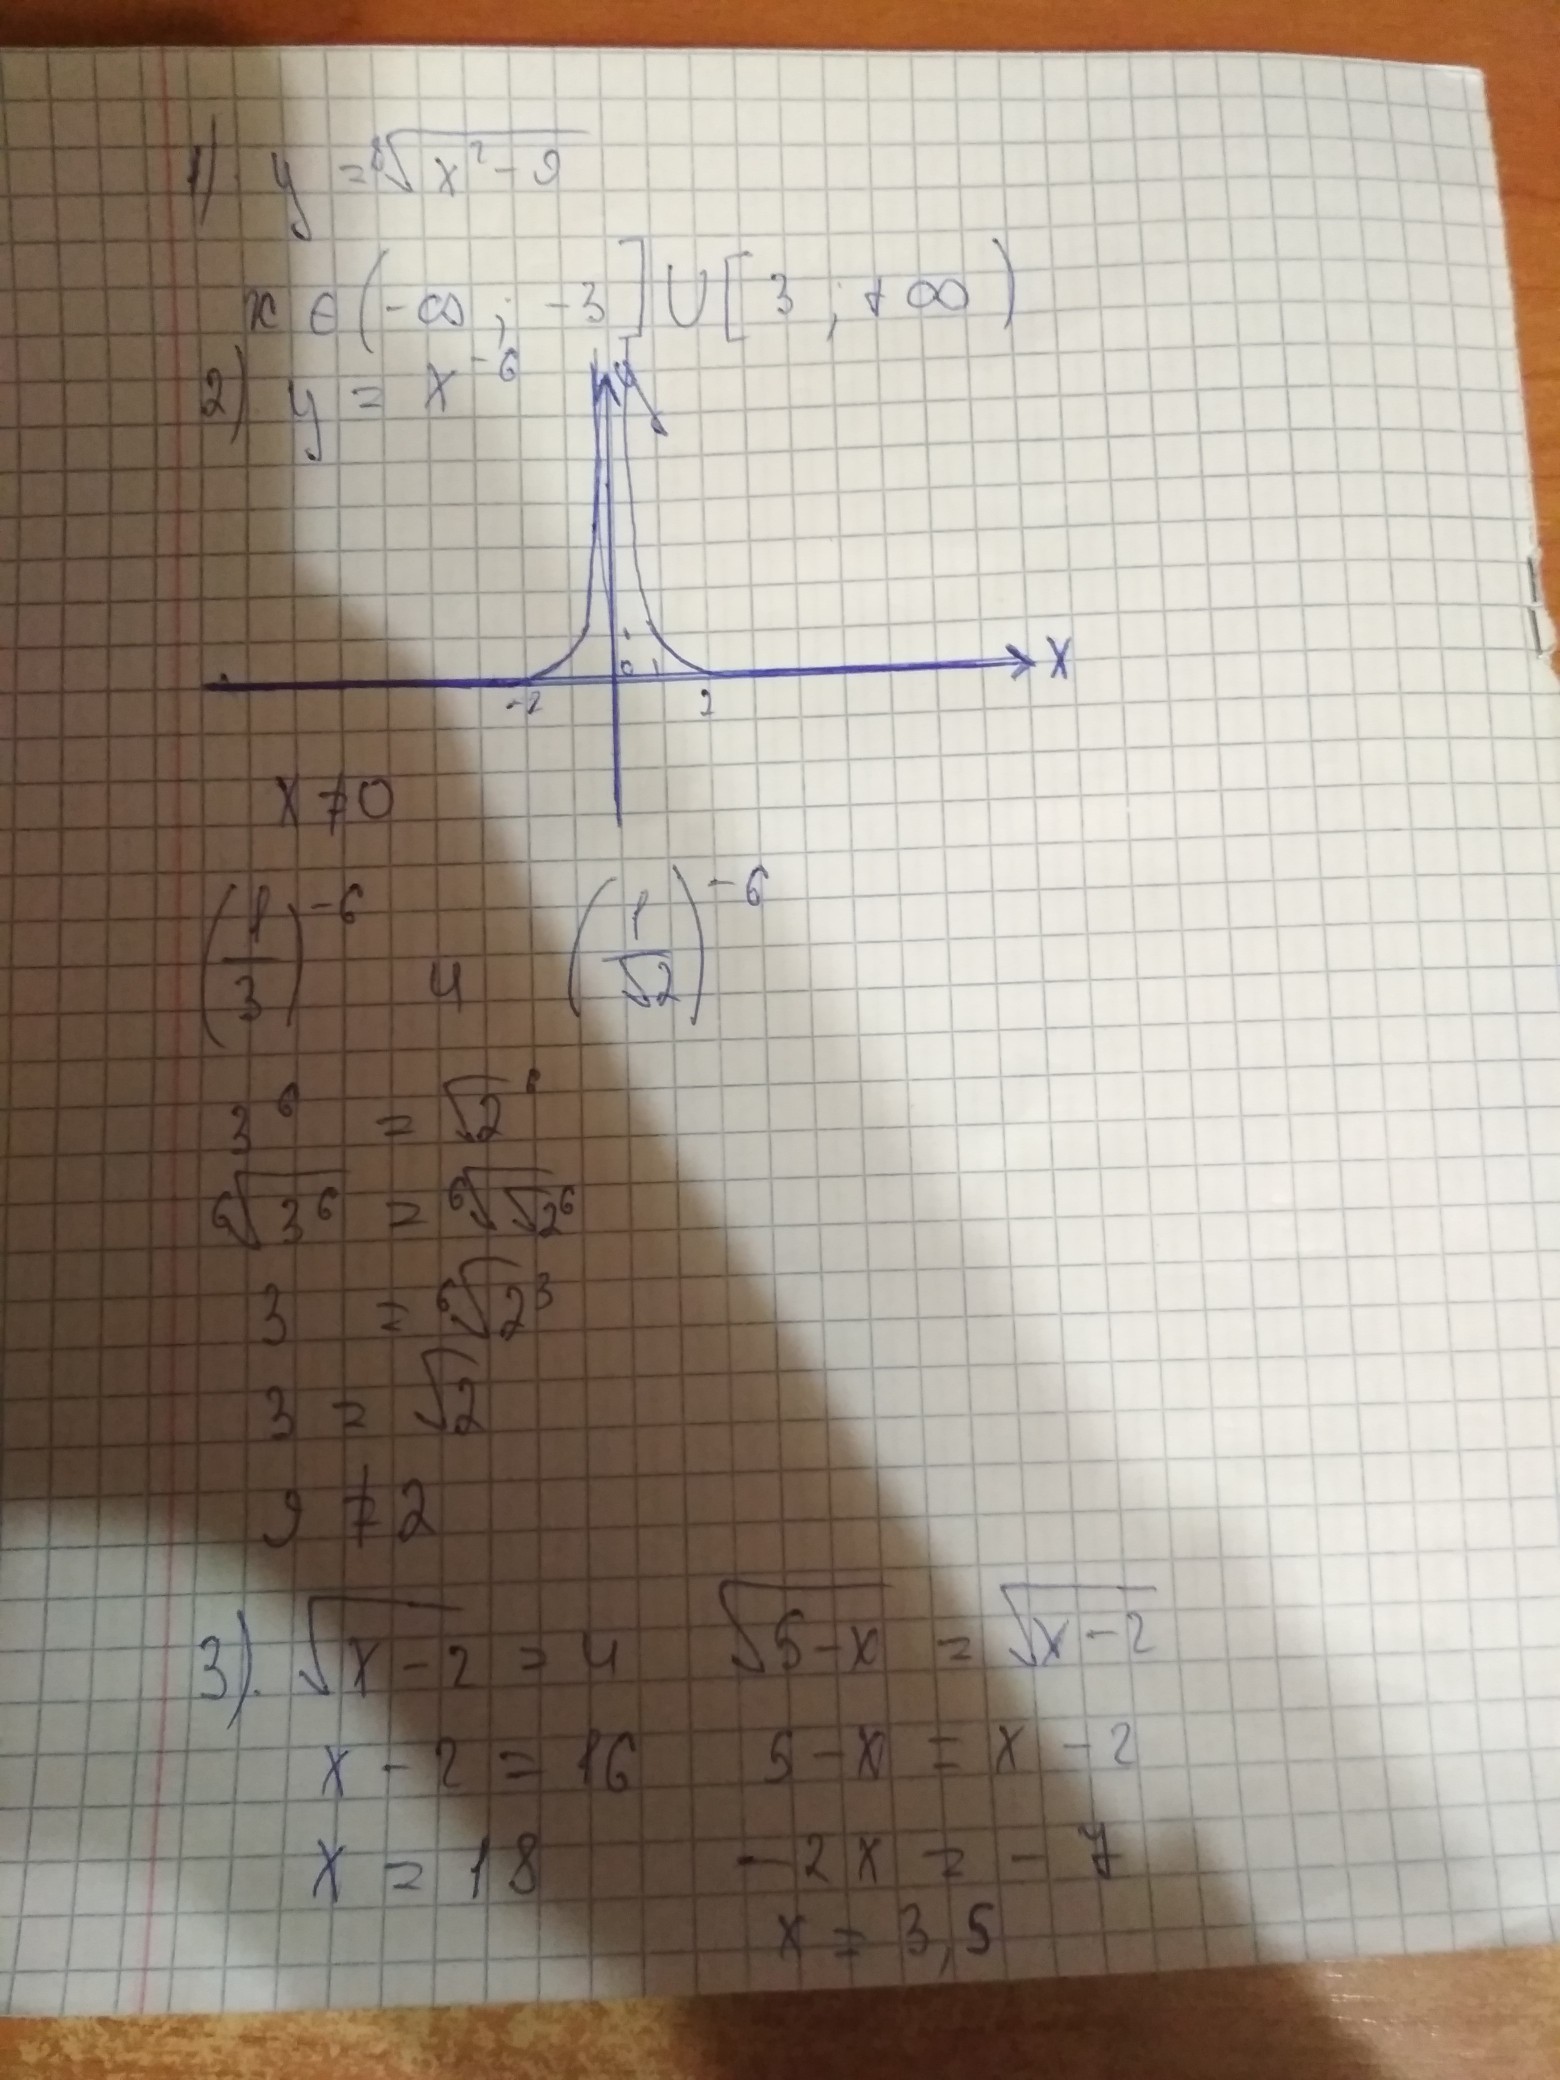 1). y = ⁸√(x² - 9)
x ∈ (-∞ ; -3] ∪ [3 ; +∞)
2). y = x⁻⁶
y
0 1
x
-2 2
x ≠ 0
(1/3)⁻⁶ и (1/√2)⁻⁶
3⁶ = √2⁶
⁶√3⁶ = ⁶√√2⁶
3 = ⁶√2³
3 = √2
9 ≠ 2
3). √(x - 2) = 4 √(5 - x) = √(x - 2)
x - 2 = 16 5 - x = x - 2
x = 18 -2x = -7
x = 3,5